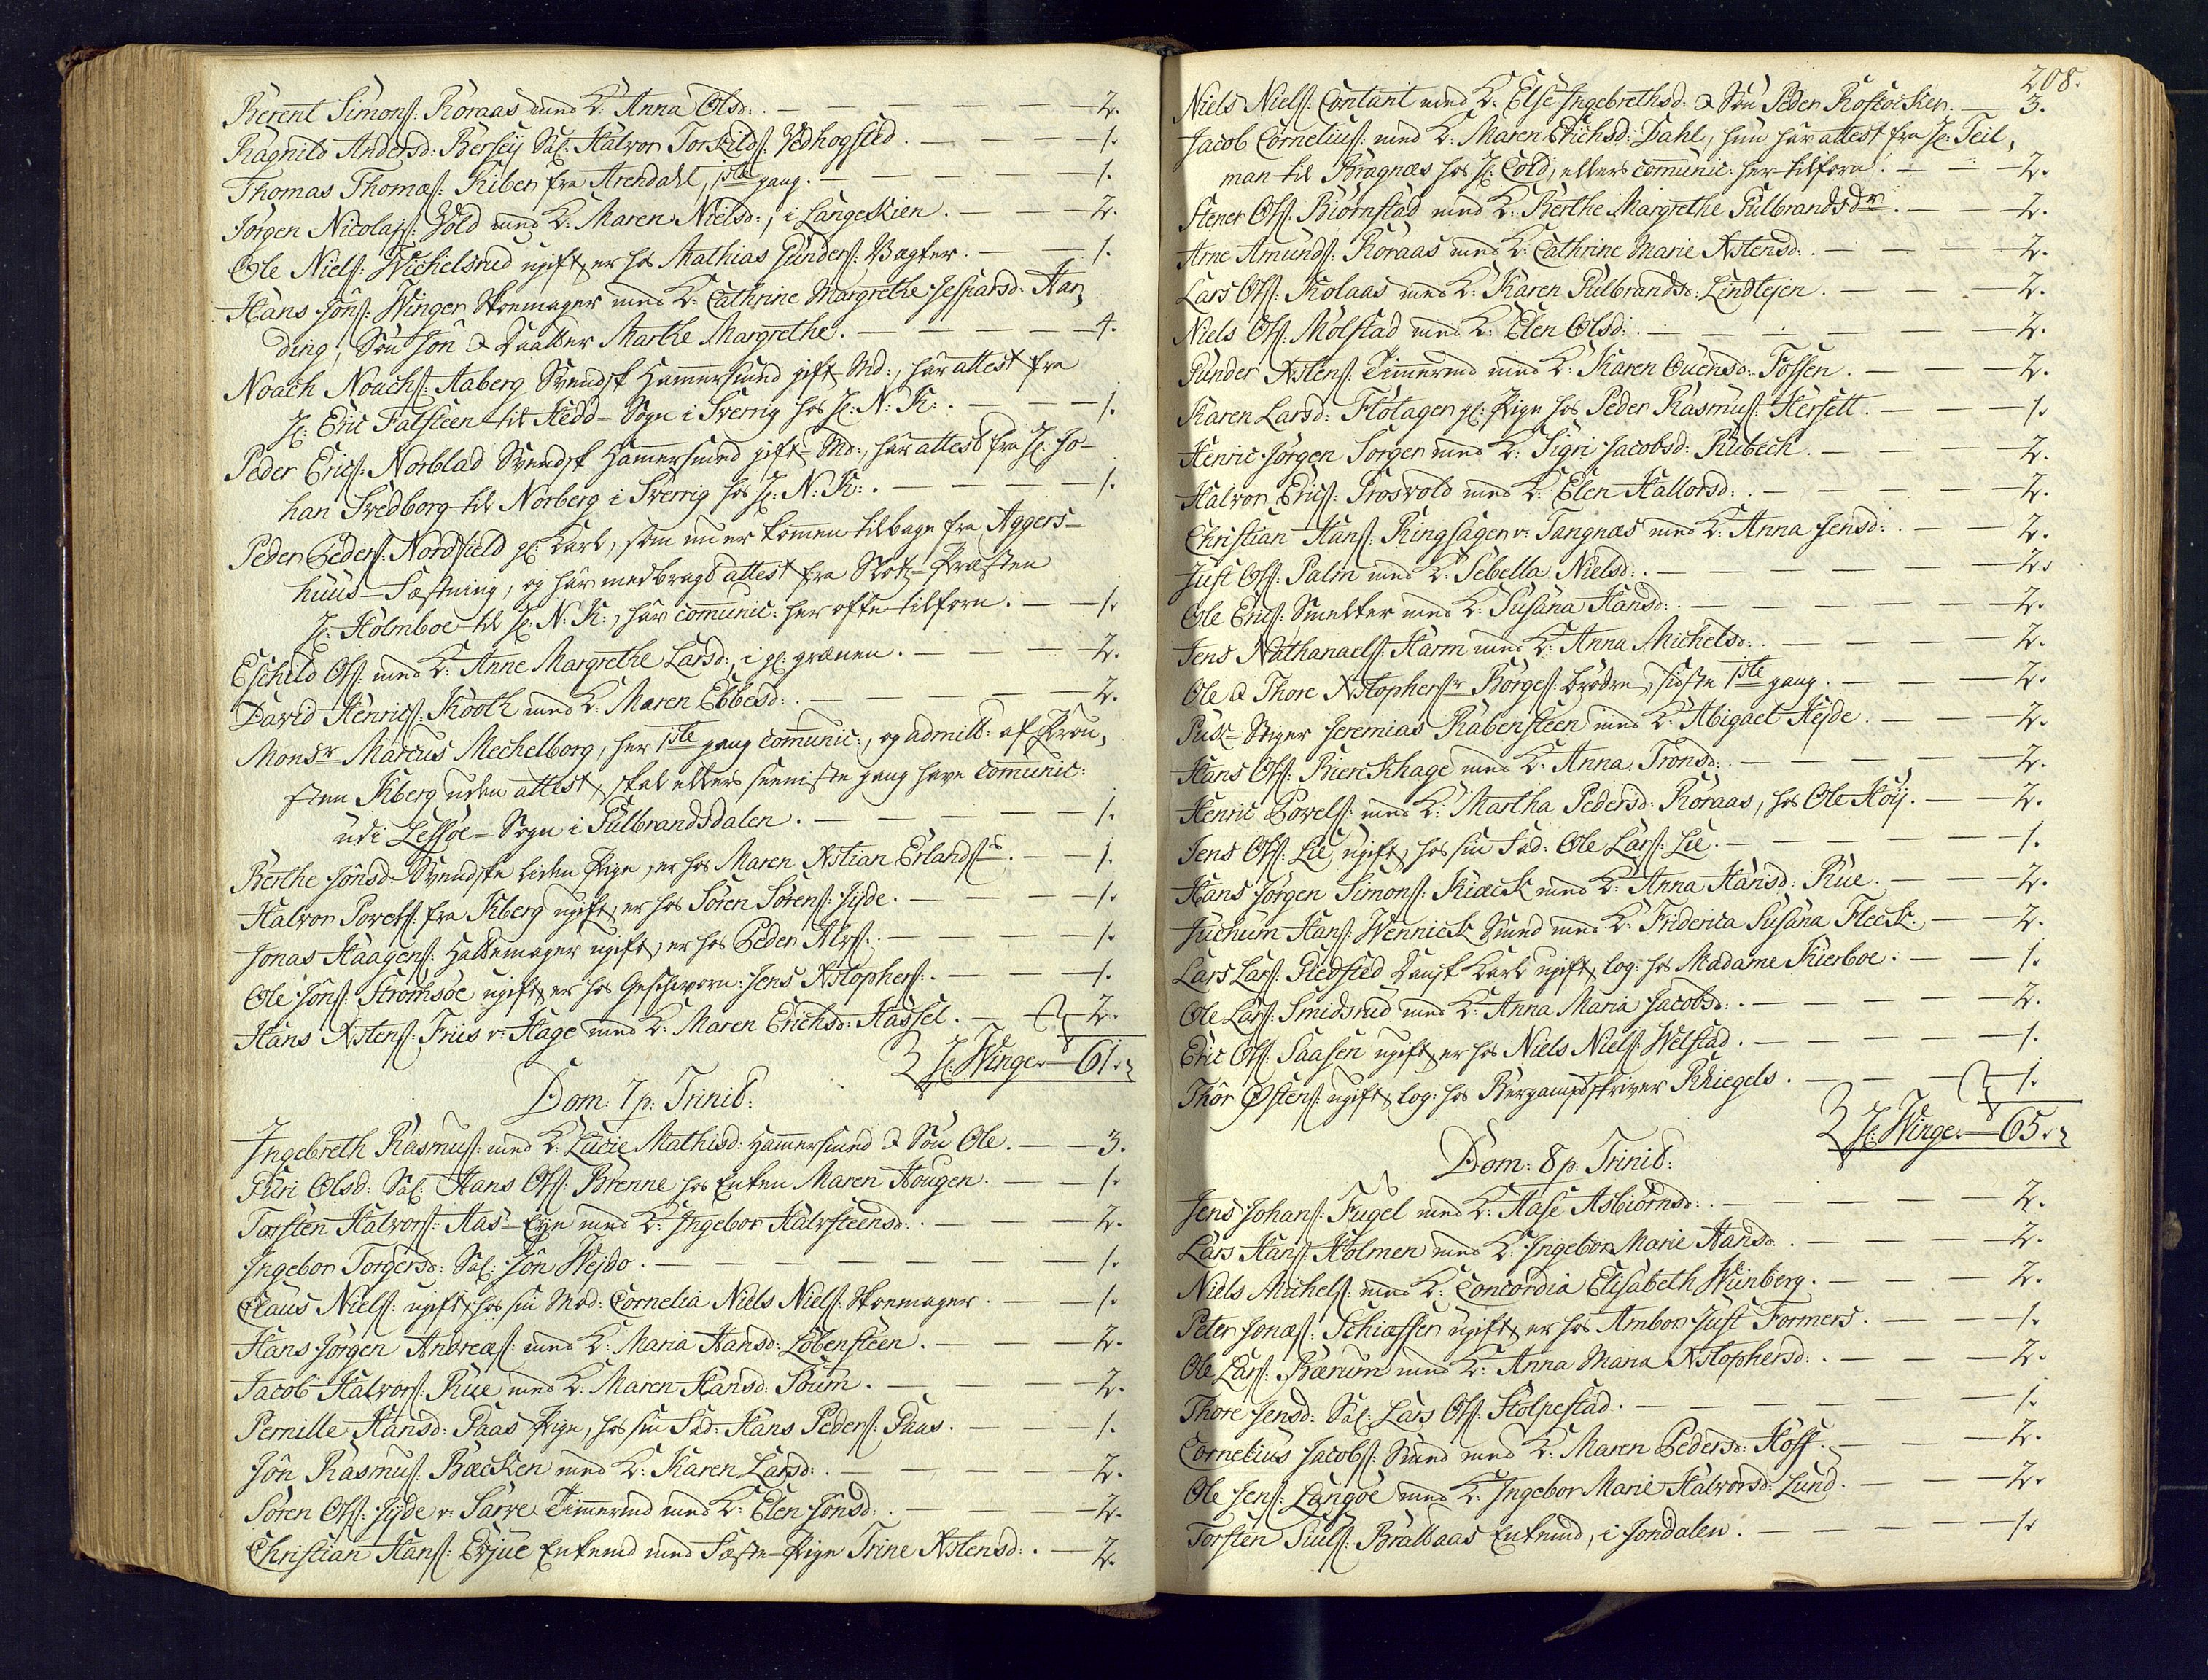 Berent Simons: Roraas med K: Anna Olsd: . — — — — 2.
Ragnild Andersd: Bersey Sal: Halvor Torkilds: Vedhogsted . — — — 1.
Thomas Thomæs: Riber fra Arendahl, 1ste gang . — — — 1.
Jørgen Nicolajs: Vold med K: Maren Nielsd:, i Langeskien . — — — 2.
Ole Niels: Wichelsrud ugift, er hos Mathias Gunders: Vagter . — — 1.
Hans Jóns: Winger Skomager med K: Cathrine Margrethe Jespersd: Har,
ding, Søn Jón & Daatter Marthe Margrethe . — — — 4.
Noach Noachs: Aaberg Svendsk Hamersmed gift Md:, har attest fra
H: Eric Falsteen til Hedd-Sogn i Sverrig hos H: N: K: . — — — 1.
Peder Erics: Norblad Svendsk Hamersmed gift Md:, har attest fra H: Jo-
han Svedborg til Norberg i Sverrig hos H: N: K: . — — — 1.
Peder Peders: Nordfield gl: Karl, som nu er kommen tilbage fra Aggers-
huus-Fæstning, og har medbragt attest fra Slots-Præsten
H: Holmboe til H: N: K:, har comunic: her ofte tilforn . — 1.
Eschild Ols: med K: Anne Margrethe Larsd:, i gl: grænen . — — — 2.
David Henrics: Kooth med K: Maren Ebbesd: . — — — 2.
Monsr Marcus Mechelborg, her 1ste gang comunic:, og admitt: af Prou,
sten Kberg uden attest, skal ellers seeniste gang have comunic:
udi Lessøe-Sogn i Gulbrandsdalen . — — — 1.
Berthe Jónsd: Svendske liden Pige, er hos Maren Xstian Erlands:s . — 1.
Halvor Povels: fra Kberg ugift, er hos Søren Sørens: Jyde . — — 1.
Jonas Haagens: Hattemager ugift, er hos Peder Alvs: . — — — 1.
Ole Jóns: Strømsøe ugift, er hos Geschworn: Jens Xstophers: . — — 1.
Hans Xstens: Friis v: Hage med K: Maren Erichsd: Hassel . — 2.
H: Winger — 61.
Dom: 7 p: Trinit:
Ingebreth Rasmus: med K: Lucie Mathisd: Hamersmed & Søn Ole . — 3.
Guri Olsd: Sal: Hans Ols: Brenne hos Enken Maren Hougen . — — 1.
Torsten Halvors: Aas-Eye med K: Ingebor Halvsteensd: . — — 2.
Ingebor Torgersd: Sal: Jón Wejdo . — — — — 1.
Claus Niels: ugift, hos sin Mod: Cornelia Niels Niels: Skomager . — 1.
Hans Jørgen Andreæs: med K: Maria Hansd: Løbensteen . — — 2.
Jacob Halvors: Rue med K: Maren Hansd: Soum . — — — 2.
Pernille Hansd: Paas Pige, hos sin Fad: Hans Peders: Paas . — — 1.
Jón Rasmus: Bæcken med K: Karen Larsd: . — — — 2.
Søren Ols: Jyde v: Sarve Timermd med K: Elen Jónsd: . — — 2.
Christian Hans: Evjue Enkemd med Fæste-Pige Trine Xstensd: . — 2.
208.
Niels Niels: Contant med K: Else Ingebrethsd: & Søn Peder Rostocker . — 3.
Jacob Cornelius: med K: Maren Erichsd: Dahl, hun har attest fra H: Teil,
man til Bragnæs hos H: Cold, ellers comunic: her tilforn . — — 2.
Stener Ols: Biørnstad med K: Berthe Margrethe Gulbrandsdr: . — — 2.
Arne Amunds: Roraas med K: Cathrine Marie Xstensd: . — — 2.
Lars Ols: Kolaas med K: Karen Gulbrandsd: Lindtejen . — — 2.
Niels Ols: Mølstad med K: Elen Olsd: . — — — 2.
Gunder Xstens: Timermd med K: Karen Ouensd: Fossen . — — 2.
Karen Larsd: Fløtager gl: Pige hos Peder Rasmus: Hersett . — — 1.
Henric Jørgen Sorger med K: Sigri Jacobsd: Rubech . — — 2.
Halvor Erics: Grosvold med K: Elen Hallorsd: . — — — 2.
Christian Hans: Ringsager v: Tangnæs med K: Anna Jensd: . — — 2.
Just Ols: Palm med K: Sebella Nielsd: . — — — 2.
Ole Erics: Smelter med K: Susana Hansd: . — — — 2.
Jens Nathanaels: Harm med K: Anna Michelsd: . — — — 2.
Ole & Thore Xstophersr Børges: brødre, sidste 1ste gang . — — 2.
Puk-Stiger Jeremias Rabensteen med K: Abigael Hejde . — — 2.
Hans Ols: Bierckhage med K: Anna Tronsd: . — — — 2.
Henric Povels: med K: Martha Pedersd: Roraas, hos Ole Høy . — 2.
Jens Ols: Lie ugift, hos sin Fad: Ole Lars: Lie . — — — 1.
Hans Jørgen Simons: Kiæck med K: Anna Hansd: Rue . — — 2.
Juchum Hans: Wennick Smed med K: Friderica Susana Fleck . — 2.
Lars Lars: Giedsted Dansk Karl ugift, log: hos Madame Kierboe . — 1.
Ole Lars: Smidsrud med K: Anna Maria Jacobsd: . — — — 2.
Eric Ols: Saasen ugift, er hos Niels Niels: Welstad . — — — 1.
Thór Østens: ugift, log: hos Bergamtskriver Kriegels . — — 1.
H: Winger — 65.
Dom: 8 p: Trinit:
Jens Johans: Fugel med K: Aase Asbiørnsd: . — — — 2.
Lars Hans: Holmen med K: Ingebor Marie Hansd: . — — — 2.
Niels Michels: med K: Concordia Elisabeth Weinberg . — — 2.
Peter Jonæs: Schiæffer ugift, er hos Ambor Just Formers . — — 1.
Ole Lars: Bærum med K: Anna Maria Xstophersd: . — — 2.
Thore Jensd: Sal: Lars Ols: Stolpestad . — — — 1.
Cornelius Jacobs: Smed med K: Maren Pedersd: Hoff . — — 2.
Ole Jens: Langøe med K: Ingebor Marie Halvorsd: Lund . — — 2.
Torsten Siuls: Brattaas Enkemd, i Jondalen . — — — 1.